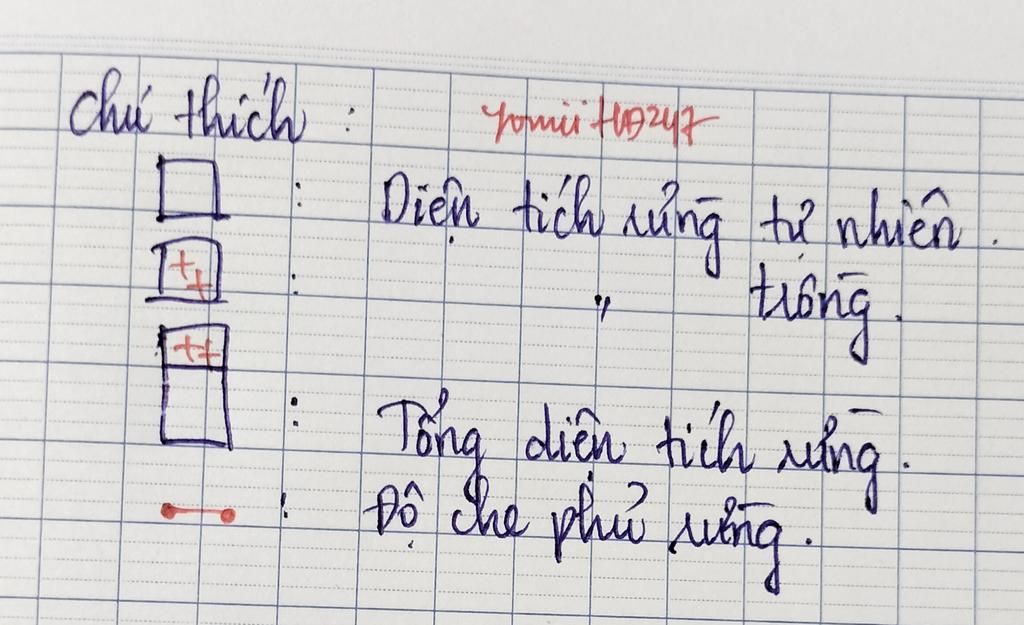 Chú thích : yomiitwo247
: Diện tích rừng tự nhiên.
: " trồng.
: Tổng diện tích rừng.
: Độ che phủ rừng.